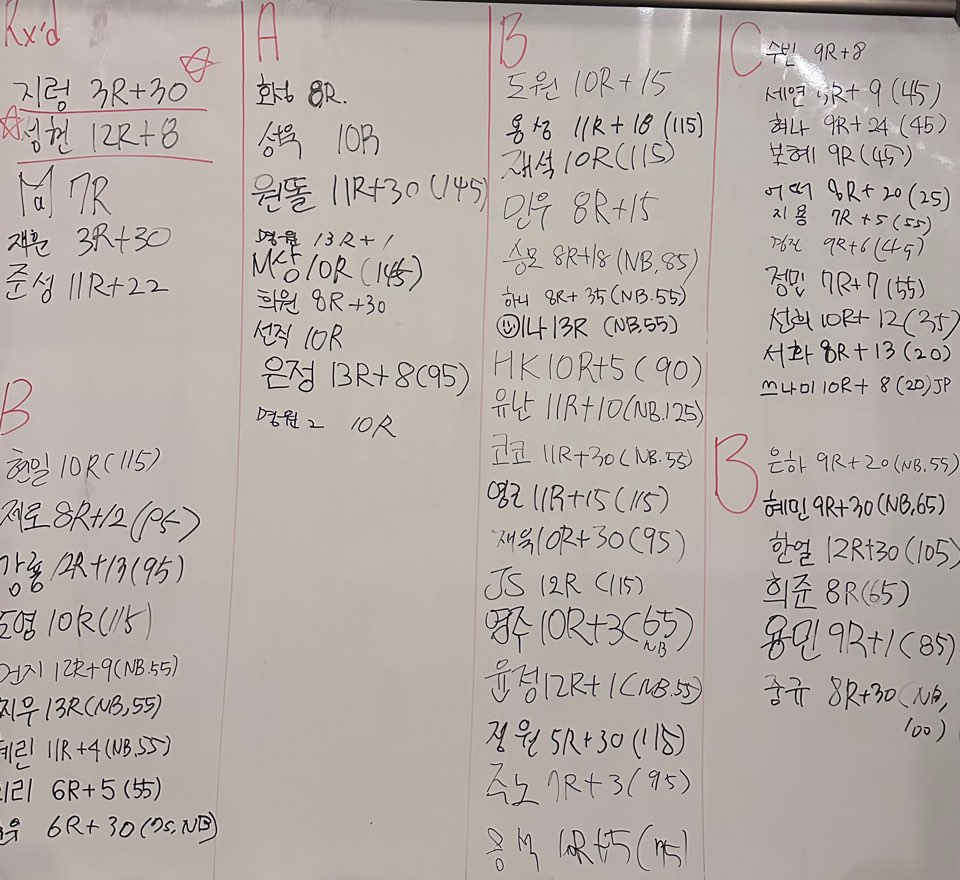 Rx'd
지렁 3R+30
성현 12R+8
Ma 7R
재훈 3R+30
준성 11R+22
B
현일 10R(115)
제로 8R+12
강룡 12R+13(95)
도영 10R(115)
12R+9(NB.55)
지우 13R(NB,55)
혜린 11R+4(NB,55)
6R+5(55)
6R+30
A
화성 8R.
상욱 10R
원똘 11R+30(145)
명월 13R+1
M상 10R(145)
희원 8R+30
선직 10R
은정 13R+8(95)
명월2 10R
B
도원 10R+15
용성 11R+18(115)
재석 10R(115)
민우 8R+15
승모 8R+18(NB,85)
하니 8R+35(NB.55)
이나 13R (NB.55)
HK 10R+5(90)
유난 11R+10(NB.125)
코코 11R+30(NB.55)
11R+15(115)
재욱 10R+30(95)
JS 12R (115)
영수 10R+3(65)
NB
윤정 12R+1(NB.55)
정원 5R+30(115)
주노 7R+3(95)
용석
C
수빈 9R+8
세연 9(45)
혜나 9R+24(45)
보혜 9R(45)
8R+20(25)
지용 7R+5(55)
9R+6(45)
정민 7R+7(55)
선희 10R+12(35)
서화 8R+13(20)
쓰나미 10R+8(20)JP
B
은하 9R+20(NB.55)
혜민 9R+30(NB,65)
한얼 12R+30(105)
희준 8R(65)
용민 9R+1(85)
중규 8R+30(NB,
100)